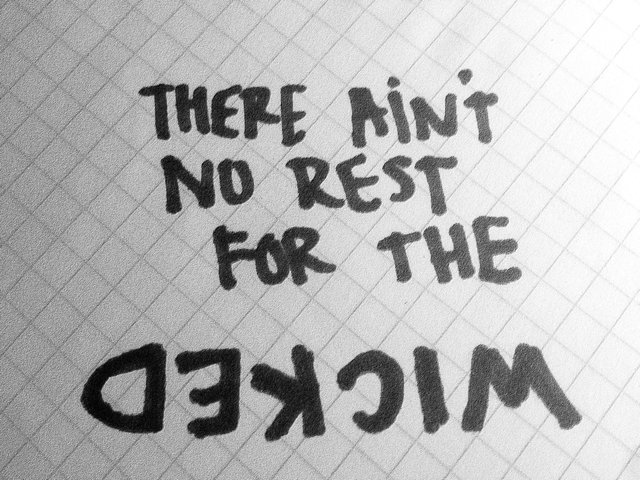 THERE AiN'T
NO REST
FOR THE
WICKED